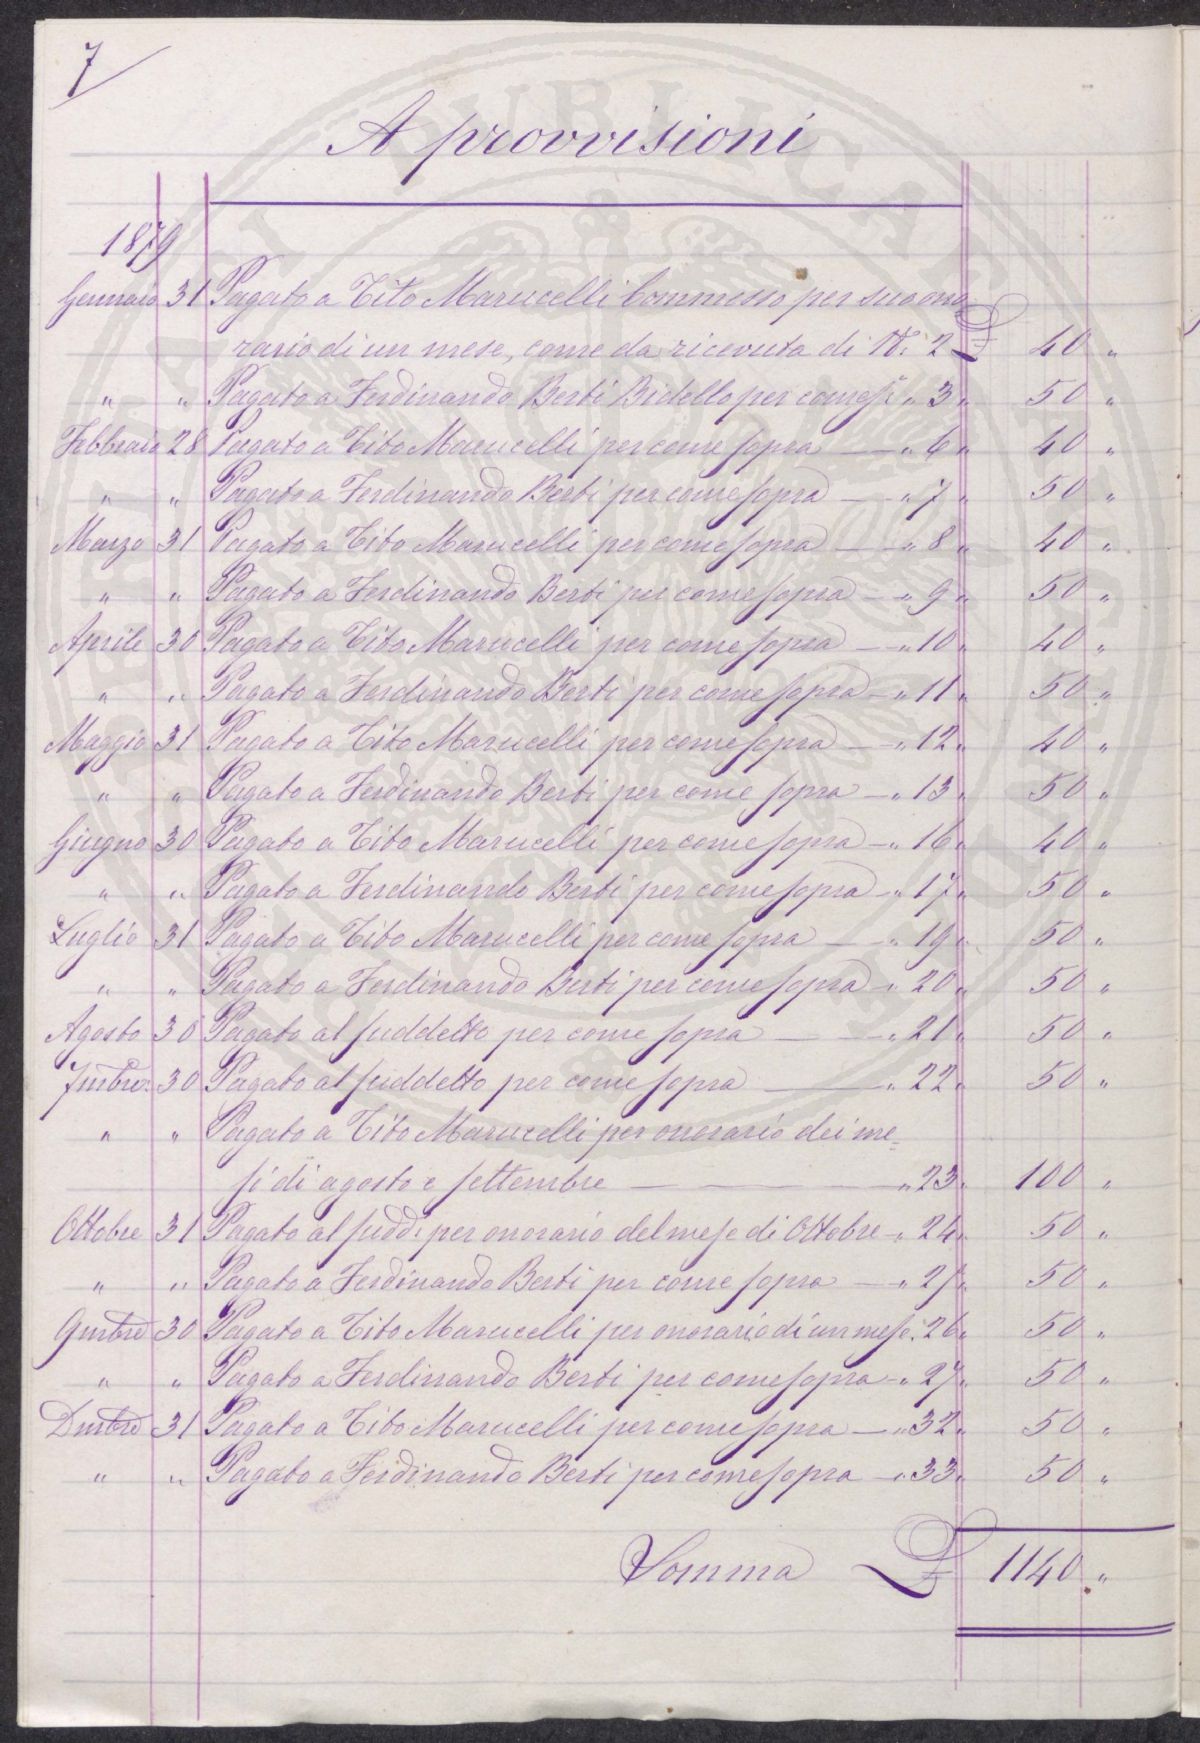 7
A provvisioni
1879
Gennaio 31 Pagato a Tito Marucelli Commesso per suo ono=
rario di un mese, come da ricevuta di N. 2 £ 40 "
" " Pagato a Ferdinando Berti Bidello per come sa " 3 " 50 "
Febbraio 28 Pagato a Tito Marucelli per come sopra — " 6 " 40 "
" " Pagato a Ferdinando Berti per come sopra — " 7 " 50 "
Marzo 31 Pagato a Tito Marucelli per come sopra — " 8 " 40 "
" " Pagato a Ferdinando Berti per come sopra — " 9 " 50 "
Aprile 30 Pagato a Tito Marucelli per come sopra — " 10 " 40 "
" " Pagato a Ferdinando Berti per come sopra — " 11 " 50 "
Maggio 31 Pagato a Tito Marucelli per come sopra — " 12 " 40 "
" " Pagato a Ferdinando Berti per come sopra — " 13 " 50 "
Giugno 30 Pagato a Tito Marucelli per come sopra — " 16 " 40 "
" " Pagato a Ferdinando Berti per come sopra — " 17 " 50 "
Luglio 31 Pagato a Tito Marucelli per come sopra — " 19 " 50 "
" " Pagato a Ferdinando Berti per come sopra " 20 " 50 "
Agosto 30 Pagato al suddetto per come sopra — " 21 " 50 "
7mbre 30 Pagato al suddetto per come sopra — " 22 " 50 "
" " Pagato a Tito Marucelli per onorario dei me=
si di agosto e settembre — " 23 " 100 "
Ottobre 31 Pagato al sudd. per onorario del mese di Ottobre — " 24 " 50 "
" " Pagato a Ferdinando Berti per come sopra — " 25 " 50 "
9mbre 30 Pagato a Tito Marucelli per onorario di un mese " 26 " 50 "
" " Pagato a Ferdinando Berti per come sopra — " 27 " 50 "
Dmbre 31 Pagato a Tito Marucelli per come sopra — " 32 " 50 "
" " Pagato a Ferdinando Berti per come sopra " 33 " 50 "
Somma £ 1140 "